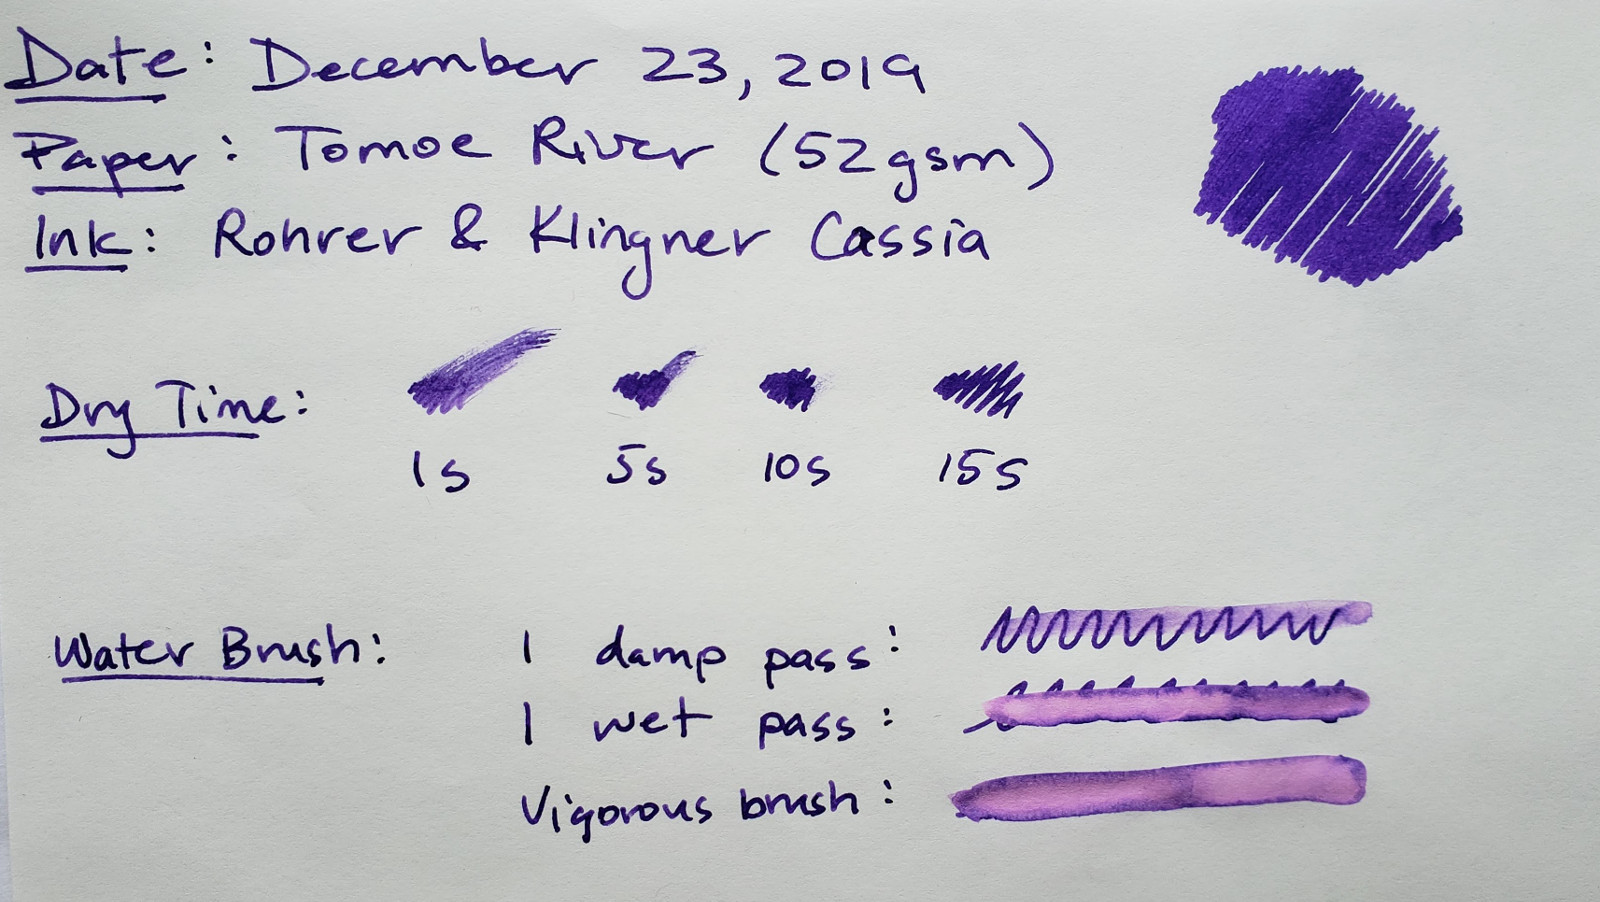 Date: December 23, 2019
Paper: Tomoe River (52gsm)
Ink: Rohrer & Klingner Cassia
Dry Time:
1s 5s 10s 15s
Water Brush: 1 damp pass:
1 wet pass:
Vigorous brush: